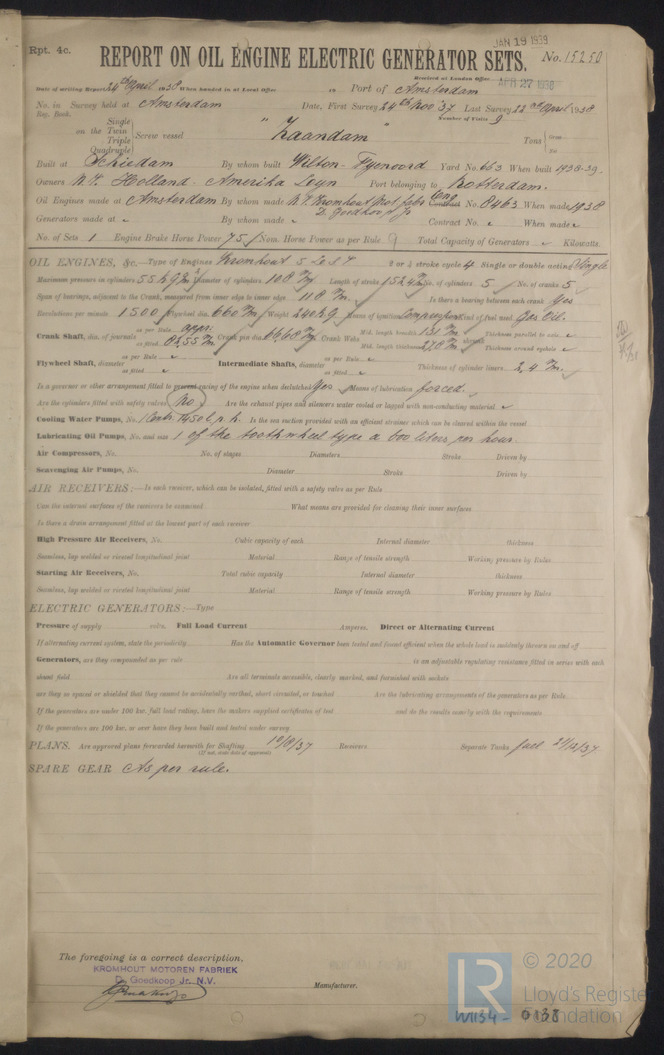 JAN 19 1939
Rpt. 4c.
REPORT ON OIL ENGINE ELECTRIC GENERATOR SETS. No. 15250
Received at London Office APR 27 1938
Date of writing Report 24th April 1938 When handed in at Local Office Port of Amsterdam
No. in Survey held at Amsterdam Date, First Survey 24th Nov '37 Last Survey 22nd April 1938
Reg. Book. Number of Visits 9
Single
on the Twin
Triple
Quadruple
Screw vessel "Zaandam" Tons Gross
Net
Built at Schiedam By whom built Wilton-Fyenoord Yard No. 663 When built 1938-39.
Owners N.V. Holland Amerika Lyn Port belonging to Rotterdam.
Oil Engines made at Amsterdam By whom made N.V. Kromhout Mot. Fabr. D. Goedkoop Jr Eng. Contract No. 8463 When made 1938
Generators made at By whom made Contract No. When made
No. of Sets 1 Engine Brake Horse Power 75 Nom. Horse Power as per Rule 9 Total Capacity of Generators Kilowatts.
OIL ENGINES, &c.—Type of Engines Kromhout 2 or 4 stroke cycle 4 Single or double acting Single
Maximum pressure in cylinders 55 Diameter of cylinders 108 Length of stroke 152,4 No. of cylinders 5 No. of cranks 5
Span of bearings, adjacent to the Crank, measured from inner edge to inner edge 118 Is there a bearing between each crank Yes
Revolutions per minute 1500 Flywheel dia. 660 Weight 240 kg Means of ignition Compression Kind of fuel used Gas Oil.
Crank Shaft, dia. of journals as per Rule appr. as fitted Crank pin dia. Crank Webs Mid. length breadth 131 Mid. length thickness Thickness parallel to axis Thickness around eyehole
Flywheel Shaft, diameter as per Rule as fitted Intermediate Shafts, diameter as per Rule as fitted Thickness of cylinder liners 2,4
Is a governor or other arrangement fitted to prevent racing of the engine when declutched Yes Means of lubrication forced.
Are the cylinders fitted with safety valves No Are the exhaust pipes and silencers water cooled or lagged with non-conducting material
Cooling Water Pumps, No. 1 Centr. 7450 l. p. h. Is the sea suction provided with an efficient strainer which can be cleared within the vessel
Lubricating Oil Pumps, No. and size 1 of the toothwheel type a 600 liters per hour.
Air Compressors, No. No. of stages Diameters Stroke Driven by
Scavenging Air Pumps, No. Diameter Stroke Driven by
AIR RECEIVERS:—Is each receiver, which can be isolated, fitted with a safety valve as per Rule
Can the internal surfaces of the receivers be examined What means are provided for cleaning their inner surfaces
Is there a drain arrangement fitted at the lowest part of each receiver
High Pressure Air Receivers, No. Cubic capacity of each Internal diameter thickness
Seamless, lap welded or riveted longitudinal joint Material Range of tensile strength Working pressure by Rules
Starting Air Receivers, No. Total cubic capacity Internal diameter thickness
Seamless, lap welded or riveted longitudinal joint Material Range of tensile strength Working pressure by Rules
ELECTRIC GENERATORS:—Type
Pressure of supply volts. Full Load Current Amperes. Direct or Alternating Current
If alternating current system, state the periodicity Has the Automatic Governor been tested and found efficient when the whole load is suddenly thrown on and off
Generators, are they compounded as per rule is an adjustable regulating resistance fitted in series with each
shunt field Are all terminals accessible, clearly marked, and furnished with sockets
are they so spaced or shielded that they cannot be accidentally earthed, short circuited, or touched Are the lubricating arrangements of the generators as per Rule
If the generators are under 100 kw. full load rating, have the makers supplied certificates of test and do the results comply with the requirements
If the generators are 100 kw. or over have they been built and tested under survey
PLANS. Are approved plans forwarded herewith for Shafting 12/8/37 Receivers Separate Tanks
(If not, state date of approval)
SPARE GEAR As per rule.
The foregoing is a correct description,
KROMHOUT MOTOREN FABRIEK
D. Goedkoop Jr. N.V.
Manufacturer.
LR © 2020
Lloyd's Register
Foundation
W1134-0138